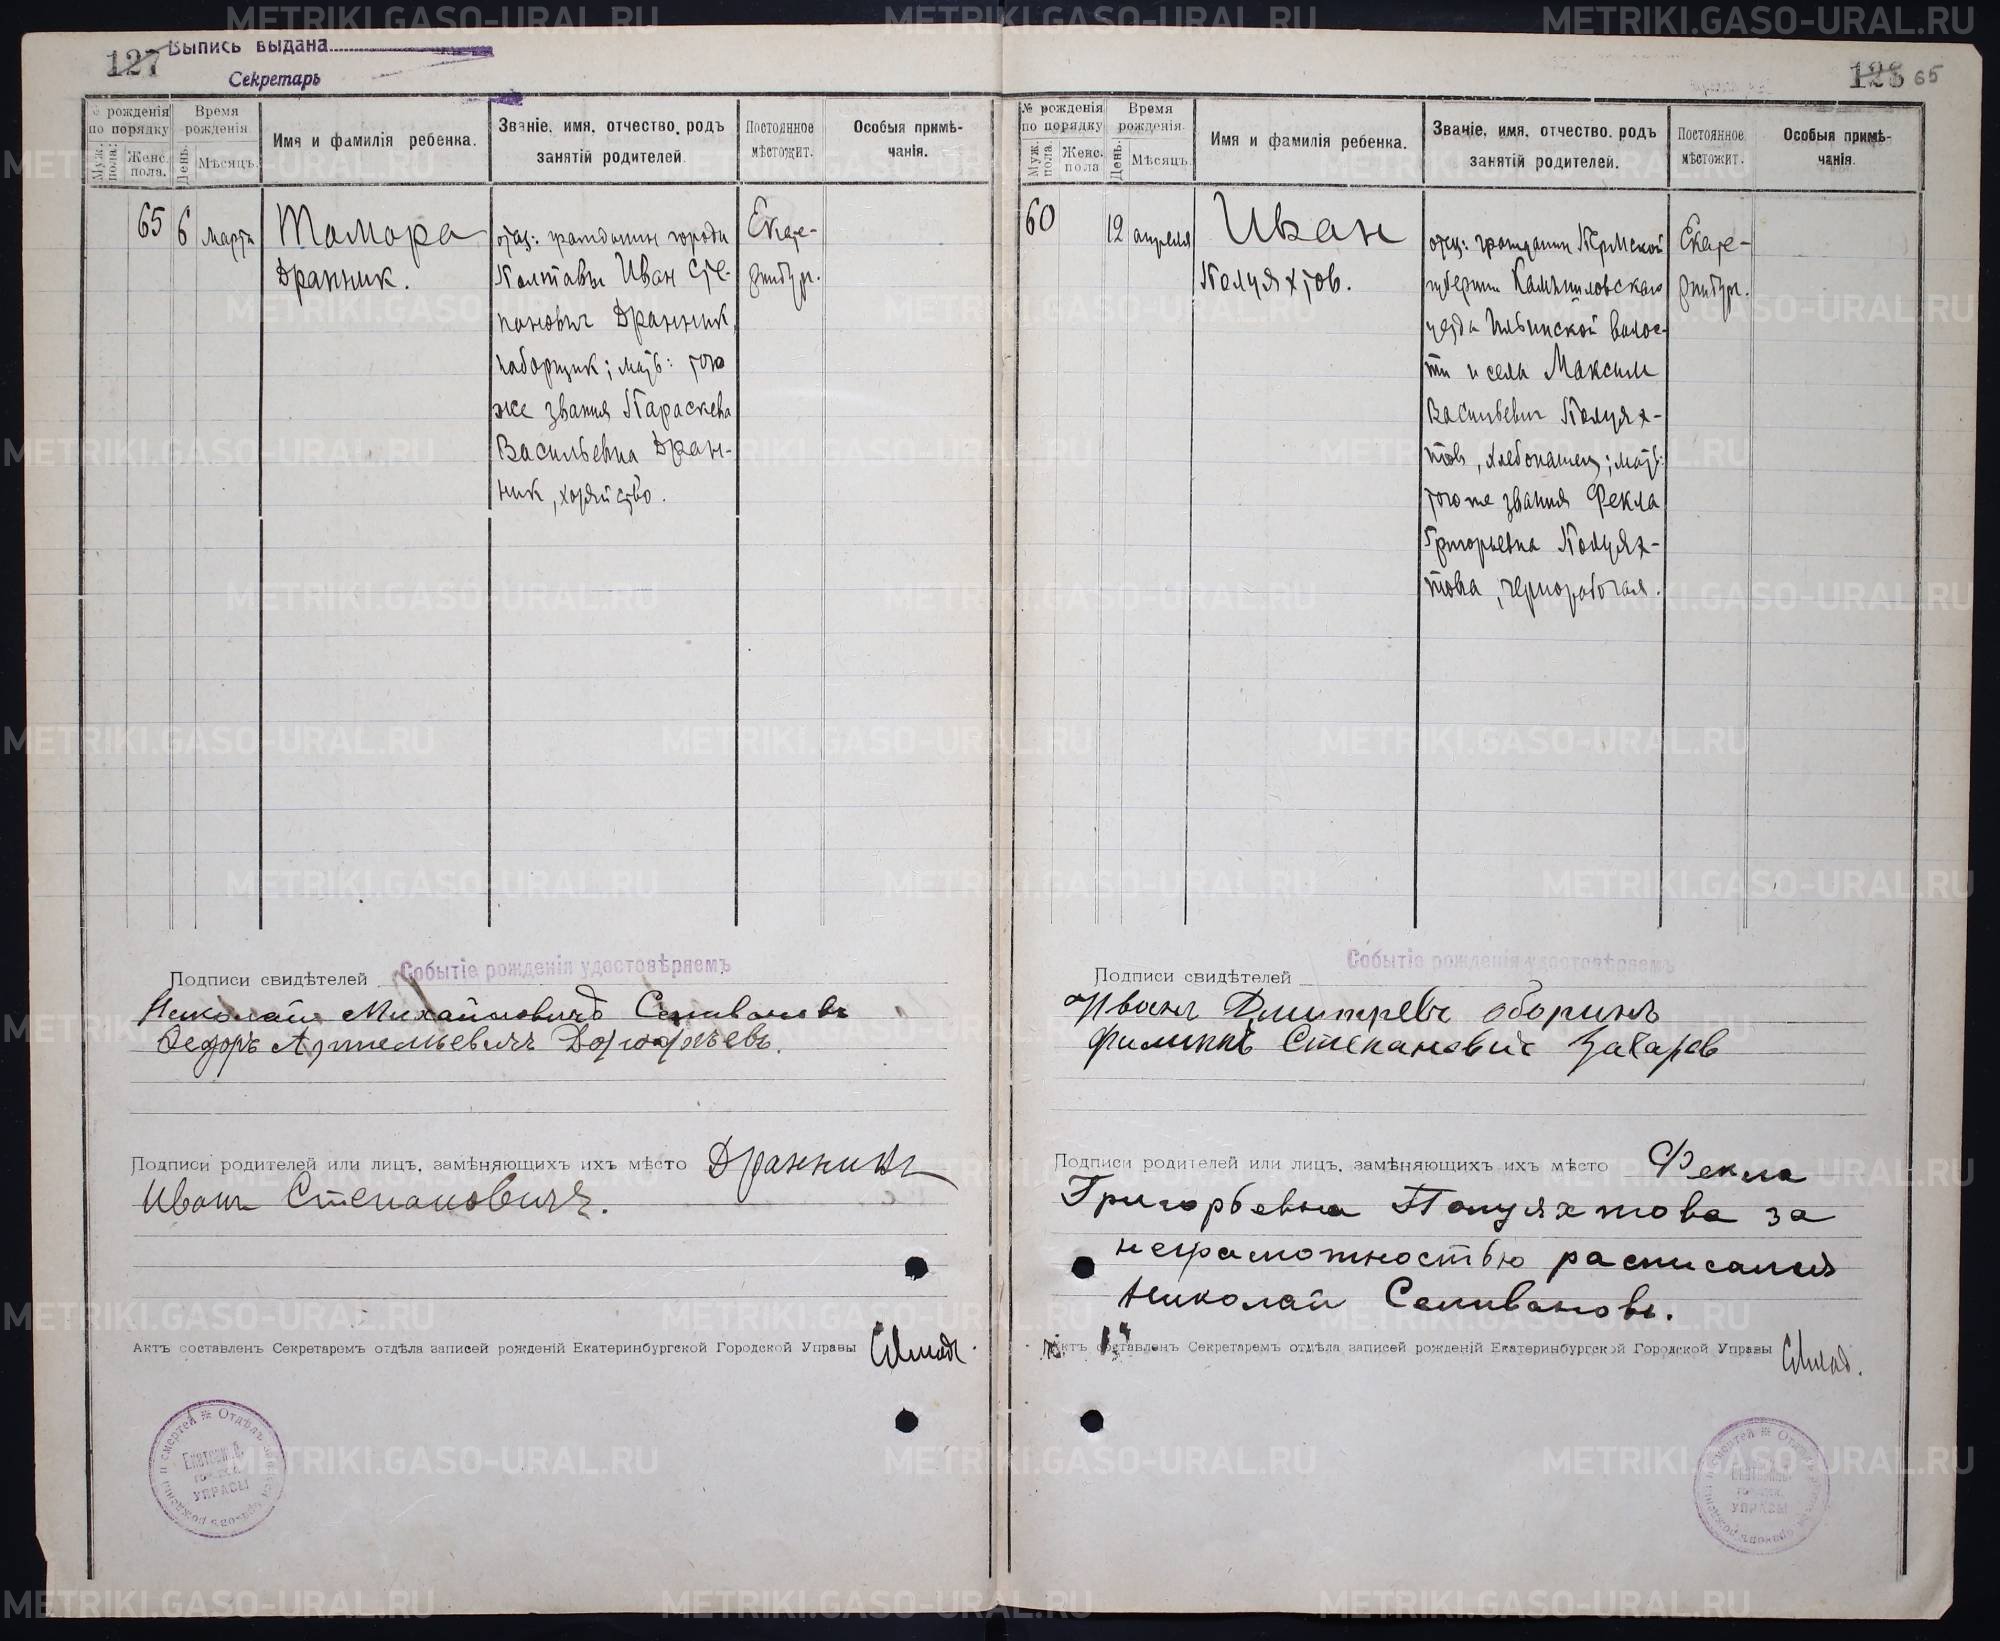 127
Выпись выдана
Секретарь
№ рожденія по порядку
Муж. пола.
Женс. пола.
Время рожденія
День.
Мѣсяцъ.
Имя и фамилія ребенка.
Званіе, имя, отчество, родъ занятій родителей.
Постоянное мѣстожит.
Особыя примѣчанія.
65
6
марта
Тамара
Дранник.
отец: гражданин города
Полтавы Иван Сте-
панович Дранник,
наборщик; мать: того
же звания Параскева
Васильевна Дран-
ник, хозяйство.
Екате-
ринбург.
Подписи свидѣтелей
Событіе рожденія удостовѣряемъ
Николай Михайловичъ Селивановъ
Федоръ Артемьевичъ
Подписи родителей или лицъ, замѣняющихъ ихъ мѣсто Дранникъ
Иванъ Степановичъ.
Актъ составленъ Секретаремъ отдѣла записей рожденій Екатеринбургской Городской Управы
УПРАВЫ
128 65
№ рожденія по порядку
Муж. пола.
Женс. пола
Время рожденія.
День.
Мѣсяцъ.
Имя и фамилія ребенка.
Званіе, имя, отчество, родъ занятій родителей.
Постоянное мѣстожит.
Особыя примѣчанія.
60
12
апреля
Иван
Полуяхтов.
отец: гражданин Пермской
губернии Камышловскаго
уезда Ильинской волос-
ти и села Максим
Васильевич Полуях-
тов, хлебопашец; мать:
того же звания Фекла
Григорьевна Полуях-
това, чернорабочая.
Екате-
ринбург.
Подписи свидѣтелей
Событіе рожденія удостовѣряемъ
Иванъ Дмитревъ Оборинъ
Филиппъ Степановичъ Захаров
Подписи родителей или лицъ, замѣняющихъ ихъ мѣсто Фекла
Григорьевна Полуяхтова за
неграмотностью расписался
Николай Селивановъ.
Актъ составленъ Секретаремъ отдѣла записей рожденій Екатеринбургской Городской Управы
УПРАВЫ
METRIKI.GASO-URAL.RU